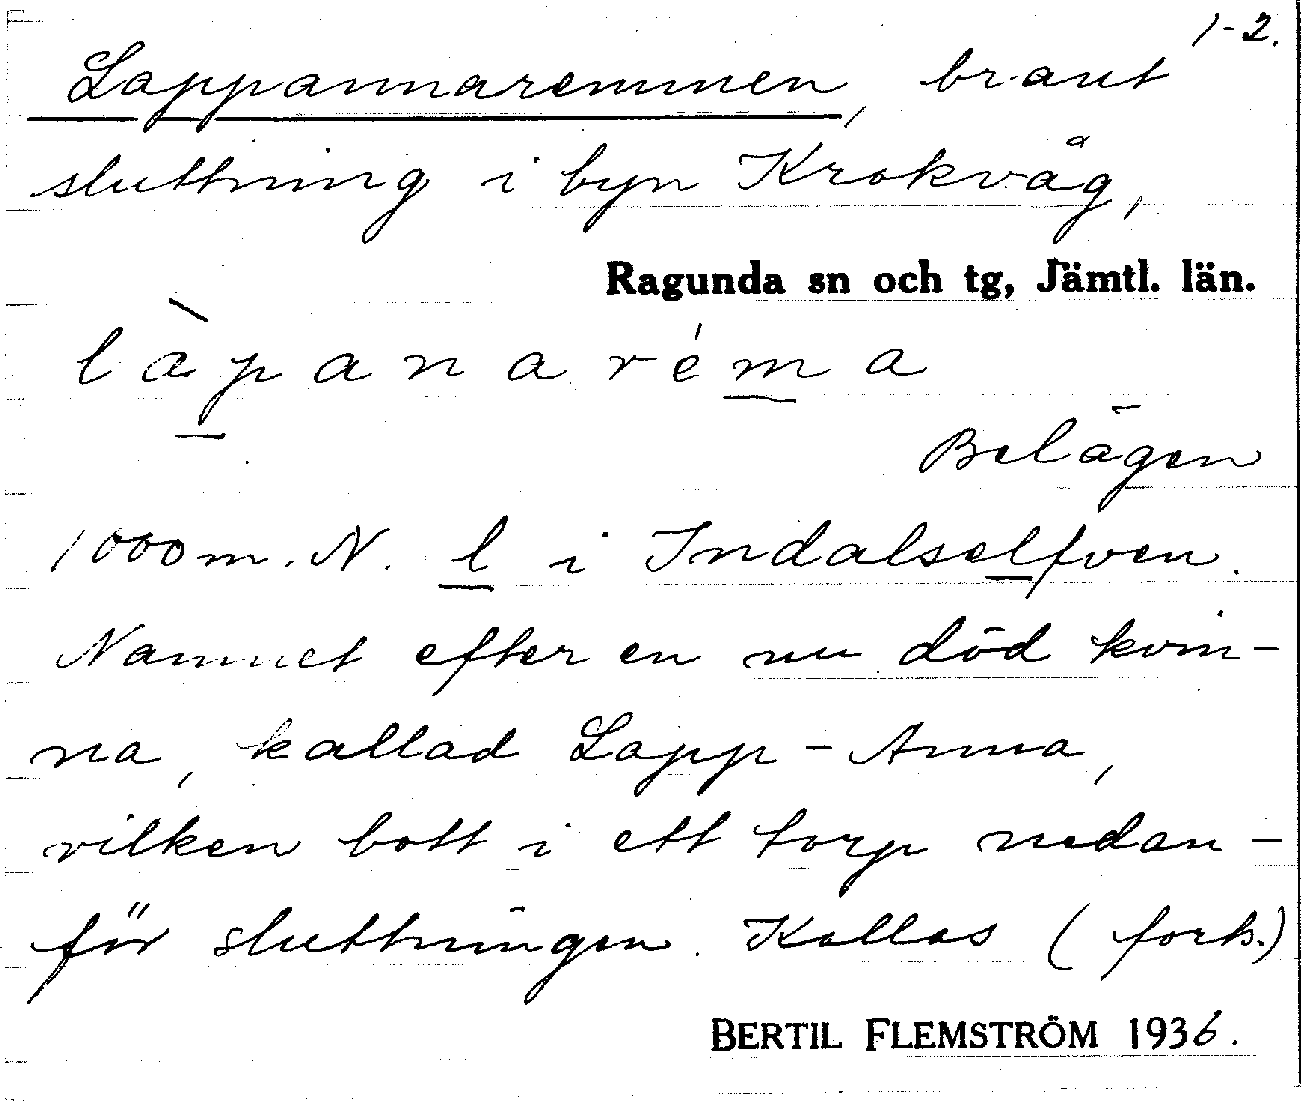 1-2.
Lappannaremmen, brant
sluttning i byn Krokvåg,
Ragunda sn och tg, Jämtl. län.
làpanaréma
Belägen
1000 m. N. l i Indalselfven.
Namnet efter en nu död kvin-
na, kallad Lapp-Anna,
vilken bott i ett torp nedan-
för sluttningen. Kallas (fork.)
BERTIL FLEMSTRÖM 1936.